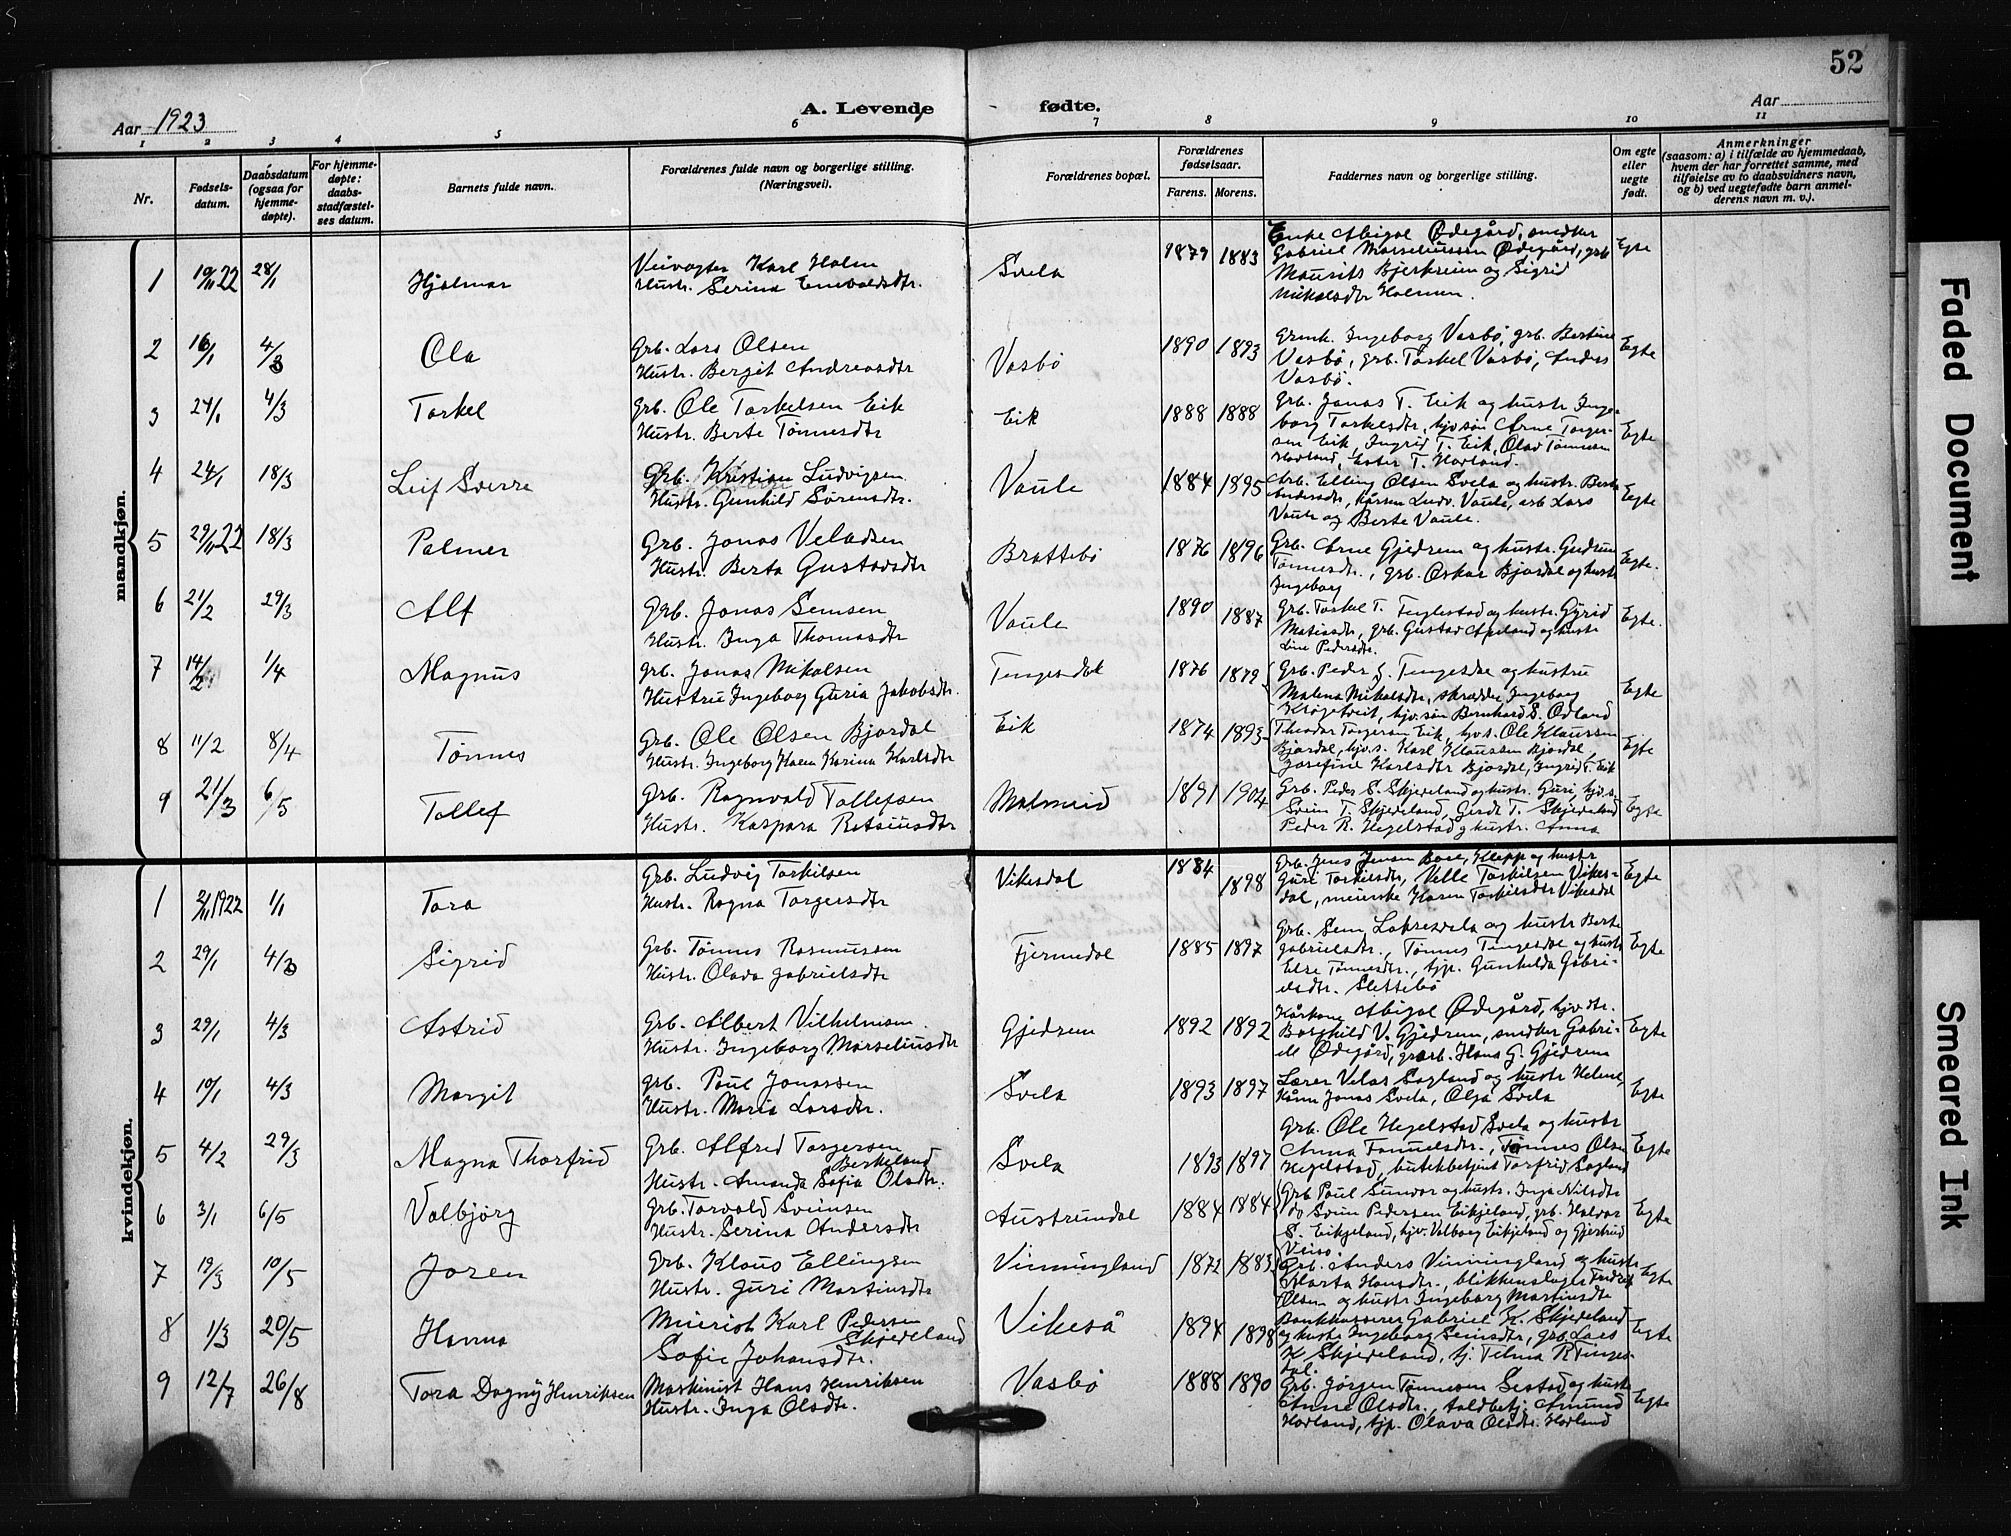 52
A. Levende fødte.
Aar 1923
Aar
1 2 3 4 5 6 7 8 9 10 11
Nr.
Fødsels-
datum.
Daabsdatum
(ogsaa for
hjemme-
døpte).
For hjemme-
døpte:
daabs-
stadfæstel-
ses datum.
Barnets fulde navn.
Forældrenes fulde navn og borgerlige stilling.
(Næringsvei).
Forældrenes bopæl.
Forældrenes
fødselsaar.
Farens. Morens.
Faddernes navn og borgerlige stilling.
Om egte
eller
uegte
født.
Anmerkninger
(saasom: a) i tilfælde av hjemmedaab,
hvem der har forrettet samme, med
tilføielse av to daabsvidners navn,
og b) ved uegtefødte barn anmel-
derens navn m. v.).
mandkjøn.
1 19/11 22 28/1 Hjalmar
Veivogter Karl Holm
Hustr. Serina Enevoldsdtr.
Svela 1879 1883
Enke Abigal Ødegård, snedker
Gabriel Marseliussen Ødegård, grb.
Maurits Bjerkreim og Sigrid
Mikalsdtr Holmen.
Egte
2 16/1 4/3 Ola
Grb. Lars Olsen
Hustr. Berget Andreasdtr
Vasbø 1890 1893
Grmk. Ingeborg Vasbø, grb. Bertine
Vasbø, grb. Torkel Vasbø, Anders
Vasbø.
Egte
3 24/1 4/3 Torkel
Grb. Ole Torkelsen Eik
Hustr. Berte Tønnesdtr
Eik 1888 1888
Grb. Jonas T. Eik og hustr. Inge-
borg Torkelsdtr, hjv.søn Arne Torger-
sen Eik, Ingrid T. Eik, Olav Tønnesen
Hovland, Ester T. Hovland.
Egte
4 24/1 18/3 Leif Sverre
Grb. Kristian Ludvigsen
Hustr. Gunhild Sørensdtr.
Vaule 1884 1895
Arb. Elling Olsen Svela og hustr. Berta
Andersdtr, Ludv. Vaule, arb Lars
Vaule og Berte Vaule.
Egte
5 29/11 22 18/3 Palmer
Grb. Jonas Veladsen
Hustr. Berta Gustavsdtr
Brattebø 1876 1896
Grb. Arne Gjedrem og hustr. Gudrun
Tønnesdtr., grb. Oskar Bjordal og hustr
Ingeborg
Egte.
6 21/2 29/3 Alf
Grb. Jonas Semsen
Hustr. Inga Thomasdtr
Vaule 1890 1887
Grb. Torkel T. og hustr. Gyrid
Matiasdtr, grb. Gustav Apeland og hustr
Line Pedersdtr.
Egte.
7 14/2 1/4 Magnus
Grb. Jonas Mikalsen
Hustru Ingeborg Guria Jakobsdtr.
Tengesdal 1876 1879
Grb. Peder J. Tengesdal og hustru
Malena Mikalsdtr, skrædder Ingeborg
hjv.søn Bernhard S. Ødland
Egte
8 11/2 8/4 Tønnes
Grb. Ole Olsen Bjordal
Hustr. Ingeborg Karen Karina Karlsdtr
Eik 1874 1893
Theodor Torgersen Eik, hjv.s. Ole Klaussen
Bjordal, hjv.s. Karl Klaussen Bjordal,
Josefine Karlsdtr Bjordal, Ingrid T. Eik
Egte
9 21/3 6/5 Tollef
Grb. Ragnvald Tollefsen
Hustr. Kaspara Rasmusdtr
Malmeid 1891 1904
Grb. Peder S. Skjeveland og hustr. Guri, hjv.s.
Svein T. Skjeveland, Gerdt T. Skjeveland
Peder R. Hegelstad og hustr. Anna
Egte
kvindekjøn.
1 2/11 1922 1/1 Tora
Grb. Ludvig Torkilsen
Hustr. Ragna Torgersdtr
Vikesdal 1884 1898
Grb. Jens Jensen Bore, Klepp og hustr
Guri Torkilsdtr, Velle Torkilsen Vikes-
dal, meierske Karen Torkilsdtr Vikesdal
Egte
2 29/1 4/3 Sigrid
Grb. Tønnes Rasmussen
Hustr. Olava Gabrielsdtr
Fjermedal 1885 1897
Grb. Sem Laksesvela og hustr Berte
Gabrielsdtr., Tønnes Tengesdal og hustr
Else Tønnesdtr., tjp. Gunhilda Gabri-
elsdtr. Slettebø
Egte
3 29/1 4/3 Astrid
Grb. Albert Vilhelmsen.
Hustr. Ingeborg Marseliusdtr
Gjedrem 1892 1892
Kårkone Abigal Ødegård, hjv.dtr.
Borghild V. Gjedrem, snedker Gabri-
el Ødegård, grarb. Hans G. Gjedrem
Egte
4 19/1 4/3 Margit
Grb. Paul Jonassen
Hustr. Maria Larsdtr.
Svela 1893 1897
Lærer Velas Sagland og hustr Helene,
Kårm Jonas Svela, Olga Svela
Egte
5 4/2 29/3 Magna Thorfrid
Grb. Alfred Torgersen
Berkeland
Hustr. Amanda Sofia Olsdtr.
Svela 1893 1897
Grb. Ole Hegelstad Svela og hustr
Anna Tønnes Olsen
Hegelstad, butikbetjent Torfrid Sagland
Egte
6 3/1 6/5 Valbjørg
Grb. Torvald Sveinsen
Hustr. Serina Andersdtr
Austrumdal 1884 1884
Grb Paul Sunvor og hustr. Inga Nilsdtr
do Svein Pedersen Eikjeland, grb. Halvor
S. Eikjeland, hjv. Valborg Eikjeland og Gjertrud
Veiso
Egte
7 19/3 10/5 Joren
Grb. Klaus Ellingsen
Hustr. Guri Martinsdtr
Vinningland 1872 1883
Grb. Anders Vinningland og hustr
Marta Hansdtr., blikkenslager Fredrik
Olsen og hustr Ingeborg Martinsdtr
Egte
8 1/3 20/5 Hanna
Meierist Karl Pedersen
Skjeveland
Sofie Johansdtr.
Vikeså 1894 1898
Bankkasserer Gabriel K. Skjeveland
og hustr Ingeborg Semsdtr, grb. Lars
K Skjeveland, tj. Telma R Tenges-
dal.
Egte
9 12/7 26/8 Tora Dagny Henriksen
Maskinist Hans Henriksen
Hustr. Inga Olsdtr.
Vasbø 1888 1890
Grb. Jørgen Tønnesen Sestad og hustr
Anne Olsdtr., toldbetj. Amund
Hovland, tjp. Olava Olsdtr. Hovland
Egte
Faded Document
Smeared Ink